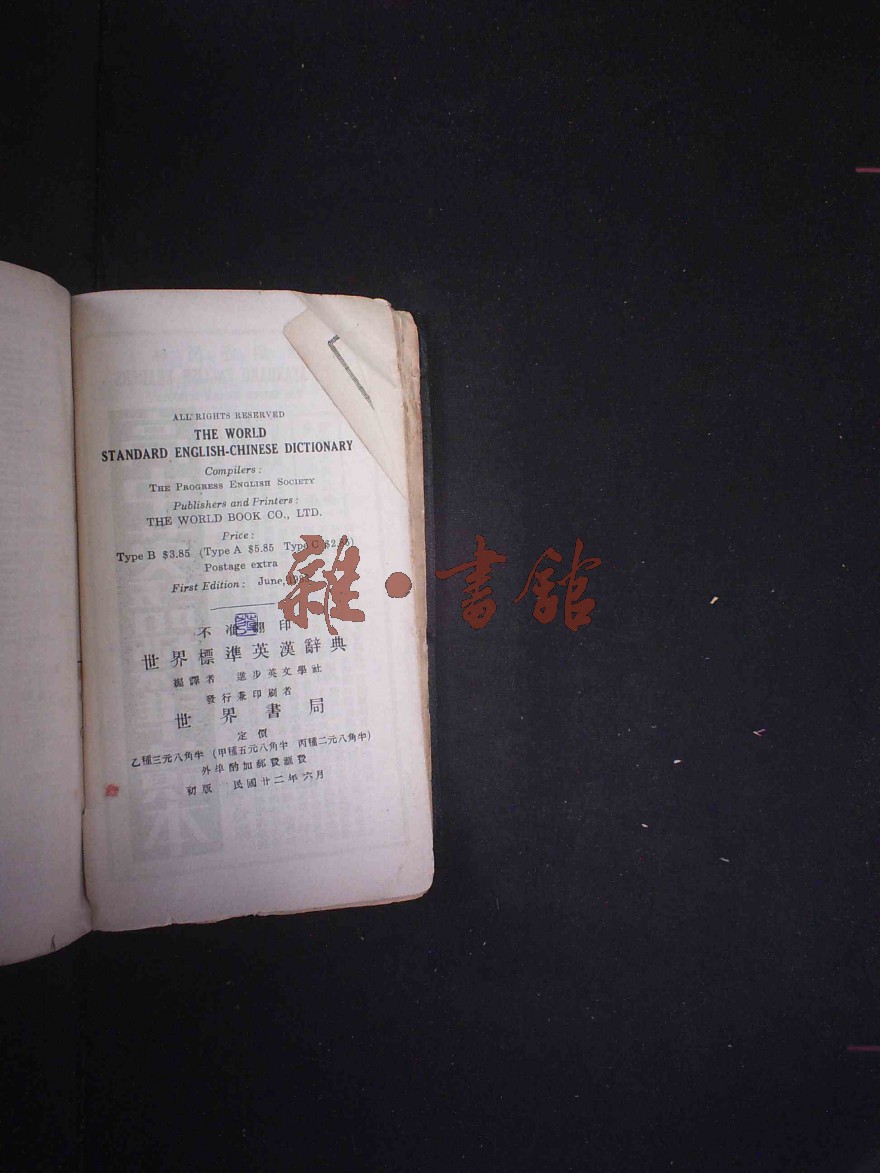 ALL RIGHTS RESERVED
THE WORLD
STANDARD ENGLISH-CHINESE DICTIONARY
Compilers :
THE PROGRESS ENGLISH SOCIETY
Publishers and Printers :
THE WORLD BOOK CO., LTD.
Price :
Type B $3.85 (Type A $5.85 Type C $2.85)
Postage extra
First Edition : June,
不准翻印
世界標準英漢辭典
編譯者 進步英文學社
發行兼印刷者
世界書局
定價
乙種三元八角半 (甲種五元八角半 丙種二元八角半)
外埠酌加郵費滙費
初版 民國廿二年六月
雜·書館